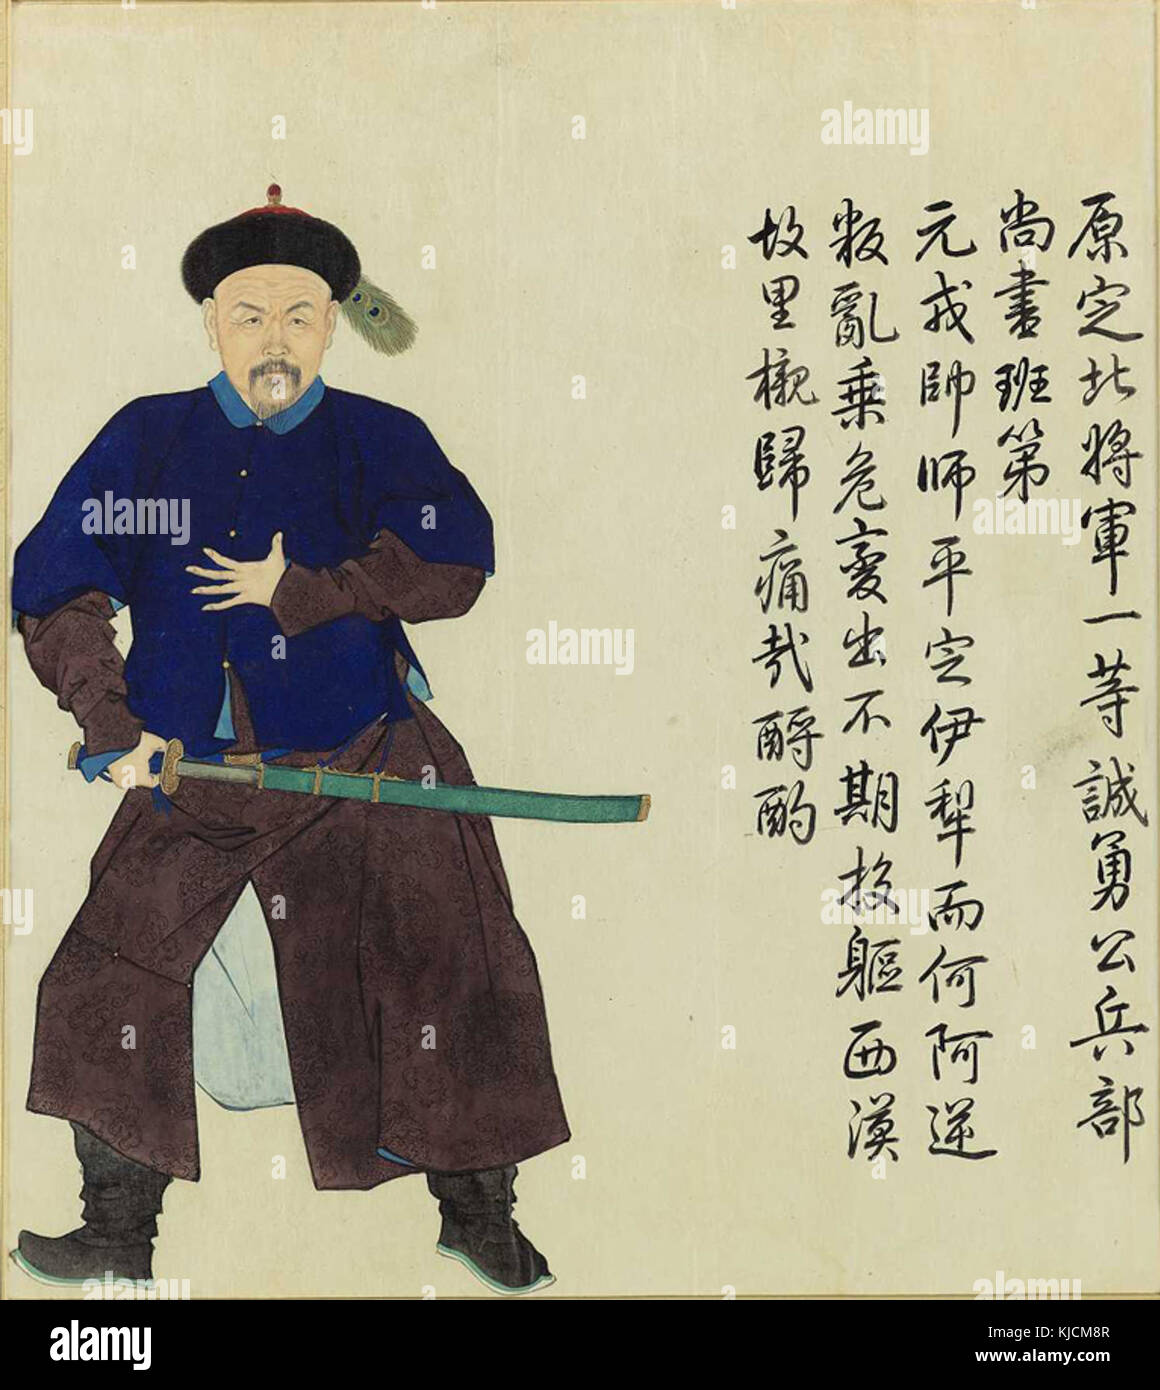 原定北將軍一等誠勇公兵部
尚書班第
元戎帥師平定伊犁而何阿逆
叛亂乘危變出不期投軀西漠
故里櫬歸痛哉酹酌
alamy
alamy
alamy
alamy
alamy
alamy
alamy
alamy
alamy
a
a
a
a
a
a
a
a
a
a
a
a
alamy
Image ID: KJCM8R
www.alamy.com